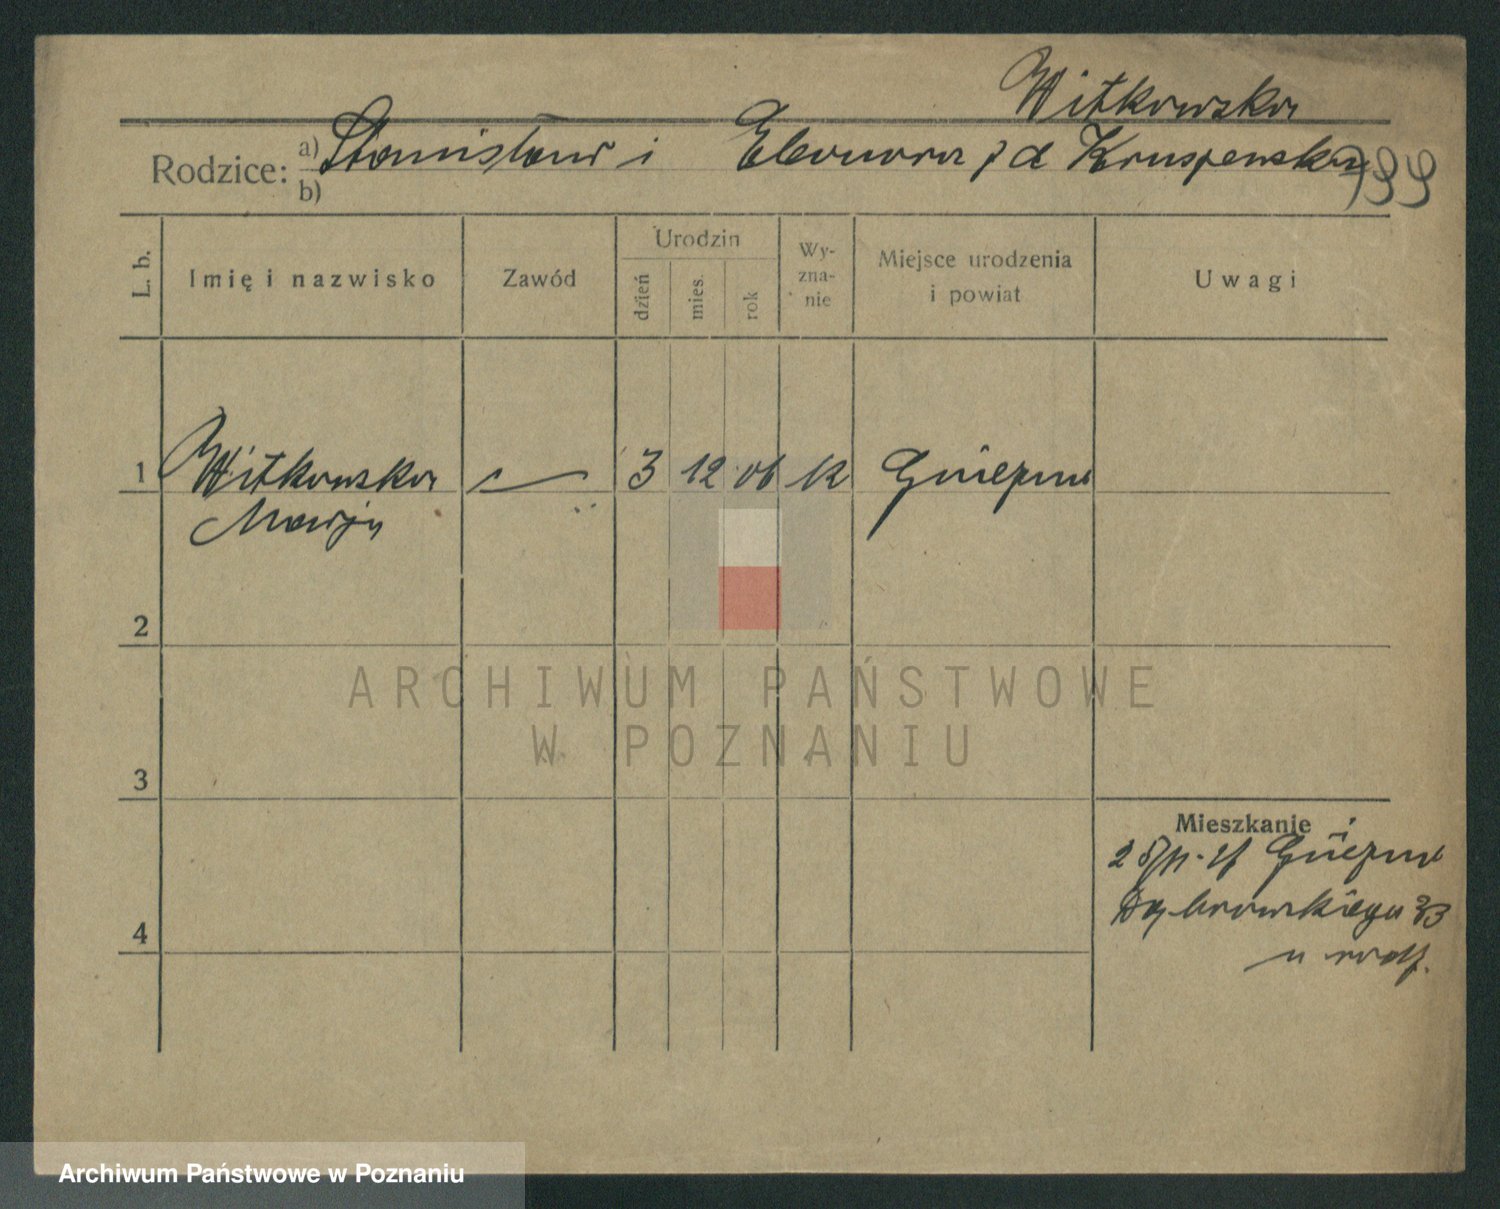 Witkowska
Rodzice: a) Stanisław i Eleonora z d Kruszewska 799
b)
L. b. Imię i nazwisko Zawód Urodzin dzień mies. rok Wy-zna-nie Miejsce urodzenia i powiat Uwagi
1 Witkowska — 3 12 06 k Gniezno
Marja
2
3
4
Mieszkanie
Gniezno
Dąbrowskiego
u rodz.
ARCHIWUM PAŃSTWOWE
W POZNANIU
Archiwum Państwowe w Poznaniu